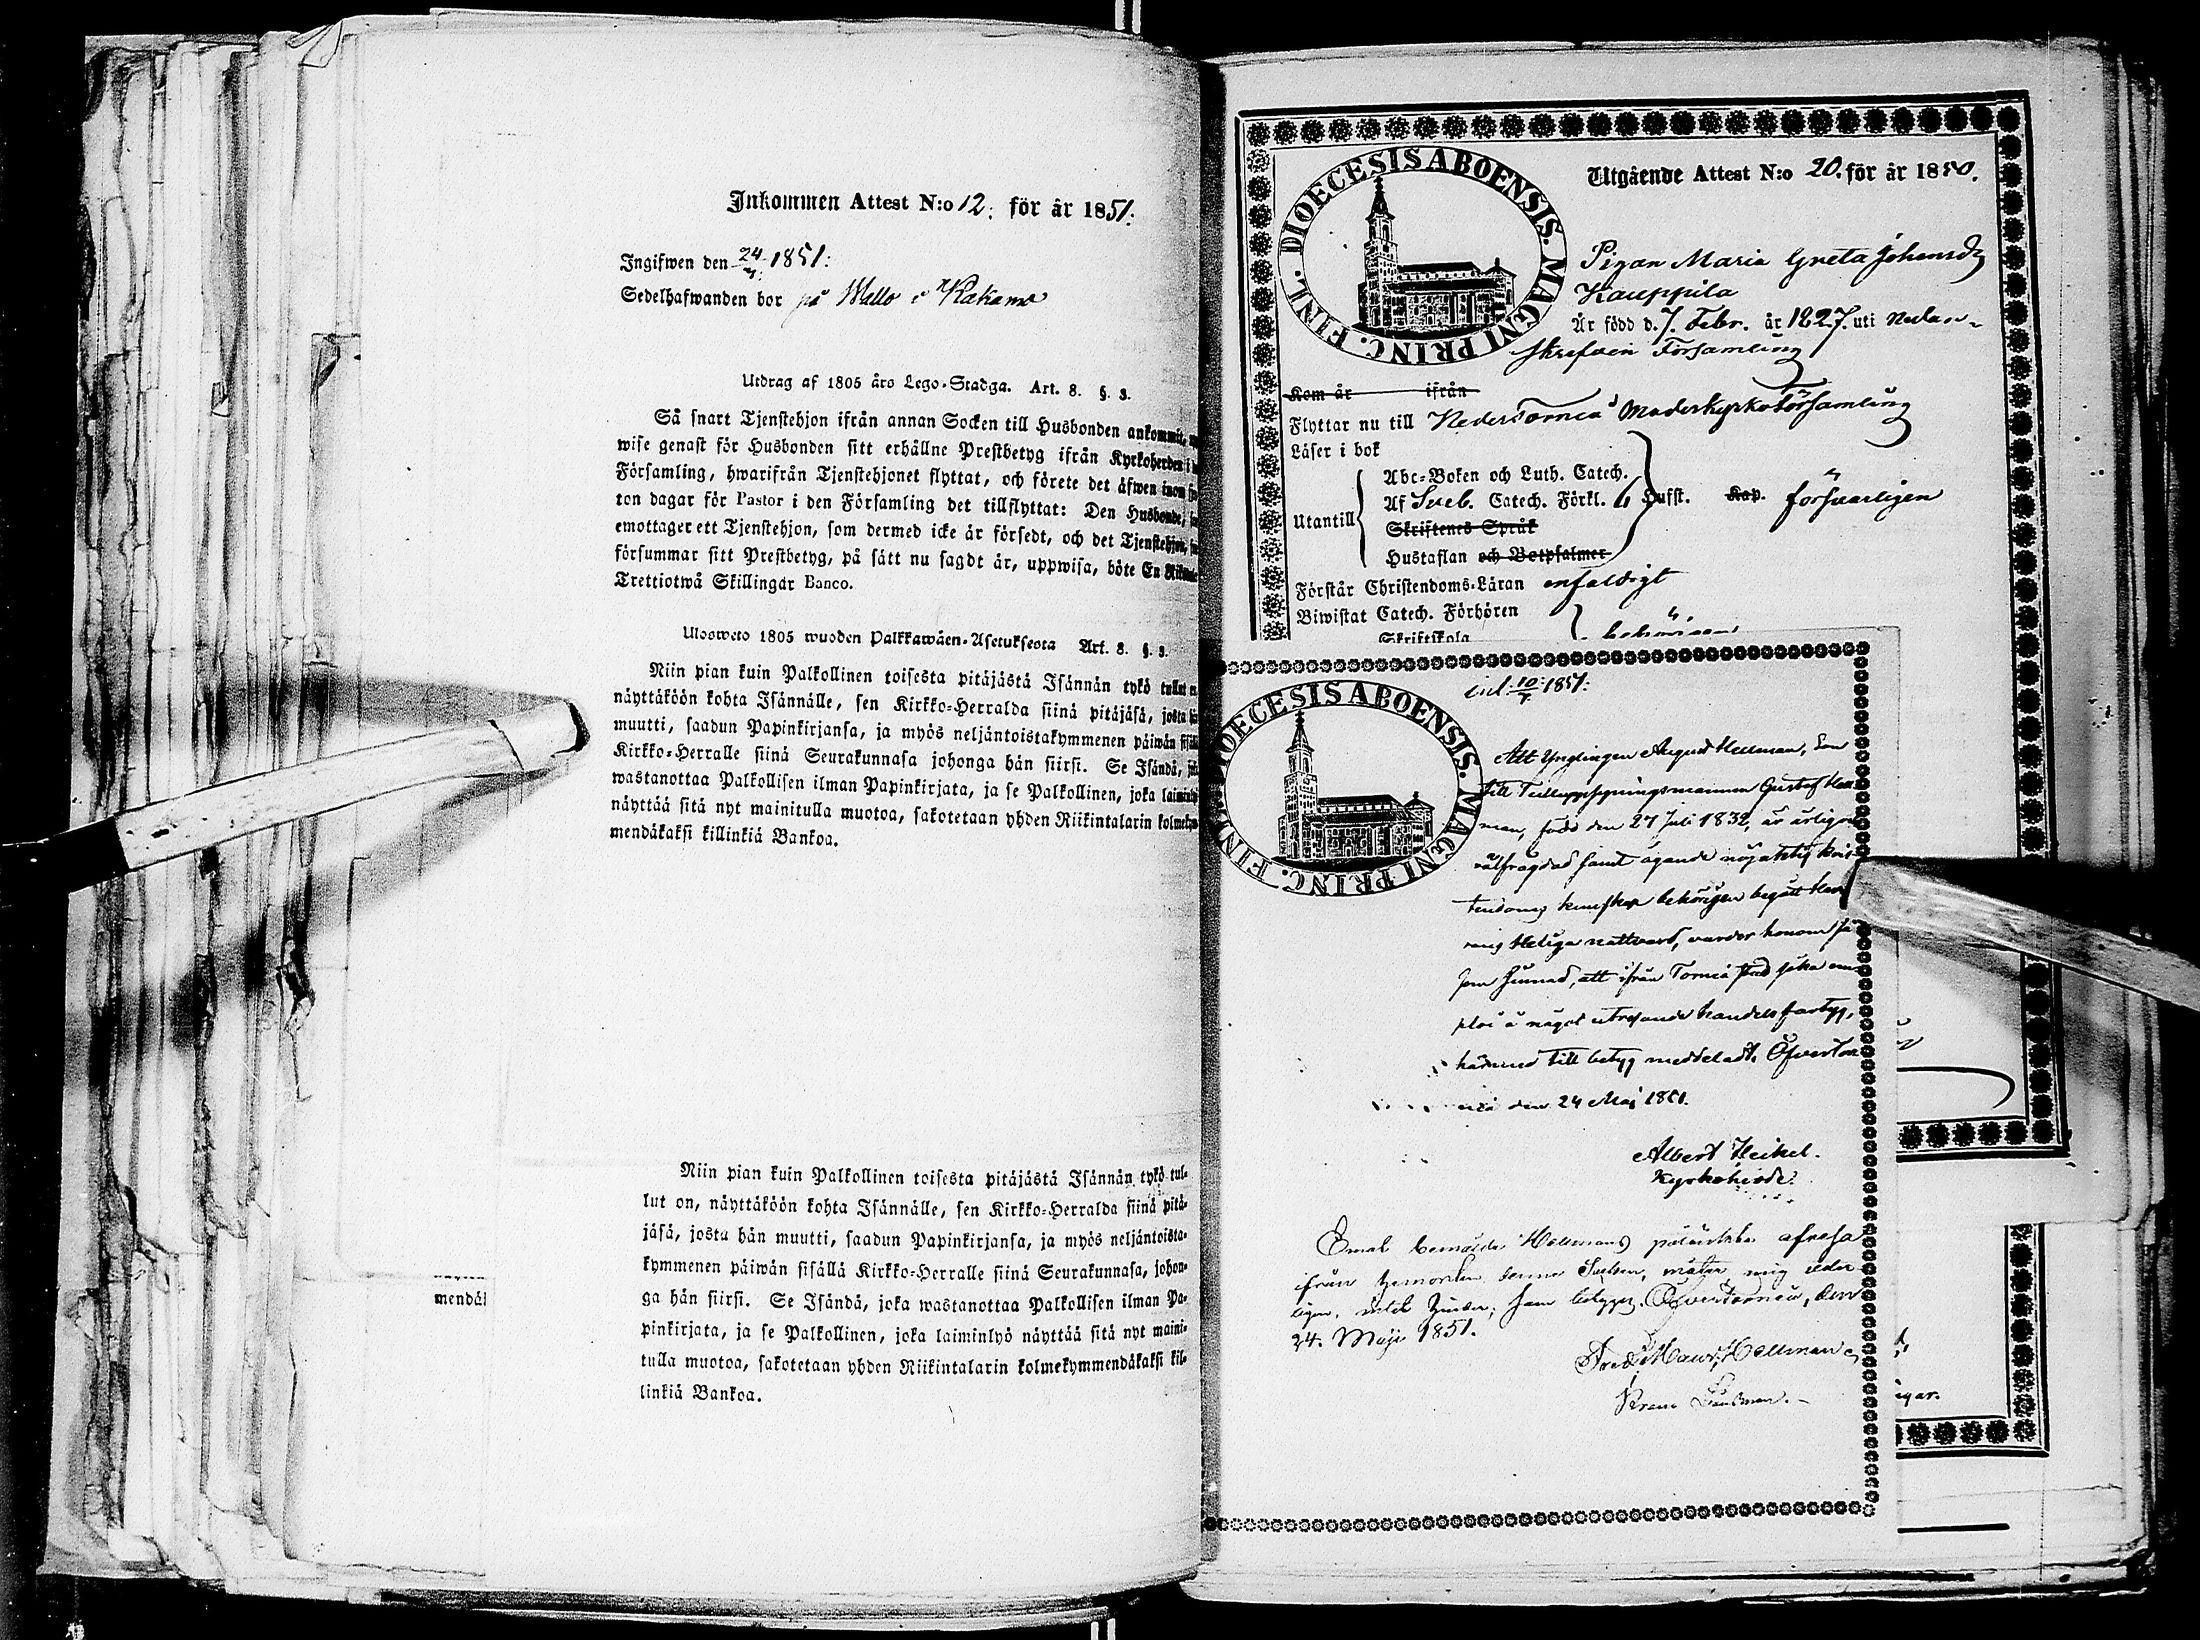 Inkommen Attest N:o 12. för år 1851.
Ingifwen den 24/7. 1851.
Sedelhafwanden bor på Wallo i Kakamo
Utdrag af 1805 års Lego-Stadga. Art. 8. §. 3.
Så snart Tjenstehjon ifrån annan Socken till Husbonden ankommit,
wise genast för Husbonden sitt erhållne Prestbetyg ifrån Kyrkoherden i
Församling, hwarifrån Tjenstehjonet flyttat, och förete det äfwen inom
ton dagar för Pastor i den Församling det tillflyttat: Den Husbonde,
emottager ett Tjenstehjon, som dermed icke är försedt, och det Tjenstehjon,
försummar sitt Prestbetyg, på sätt nu sagdt är, uppwisa, böte En
Trettiotwå Skillingar Banco.
Ulosweto 1805 wuoden Palkkawäen-Asetuksesta Art. 8. §. 3.
Niin pian kuin Palkollinen toisesta pitäjästä Isännän tykö tullut
näyttäköön kohta Isännälle, sen Kirkko-Herralda siinä pitäjäsä, josta
muutti, saadun Papinkirjansa, ja myös neljäntoistakymmenen päiwän
Kirkko-Herralle siinä Seurakunnasa johonga hän siirsi. Se Isändä,
wastanottaa Palkollisen ilman Papinkirjata, ja se Palkollinen, joka
näyttää sitä nyt mainitulla muotoa, sakotetaan yhden Riikintalarin
mendäkaksi killinkiä Bankoa.
Niin pian kuin Palkollinen toisesta pitäjästä Isännän tykö tul-
lut on, näyttäköön kohta Isännälle, sen Kirkko-Herralda siinä pitä-
jäsä, josta hän muutti, saadun Papinkirjansa, ja myös neljäntoista-
kymmenen päiwän sisällä Kirkko-Herralle siinä Seurakunnasa, johon-
ga hän siirsi. Se Isändä, joka wastanottaa Palkollisen ilman Pa-
pinkirjata, ja se Palkollinen, joka laiminlyö näyttää sitä nyt maini-
tulla muotoa, sakotetaan yhden Riikintalarin kolmekymmendäkaksi kil-
linkiä Bankoa.
mendäk
DIOECESIS ABOENSIS. MAGNI PRINC. FINL.
Utgående Attest N:o 20. för år 1850.
Pigan Maria Greta Johansdr
Kauppila
Är född d. 7. Febr. år 1827. uti Nedan-
skrefven Församling
Kom år ifrån
Flyttar nu till Nedertorneå Moderkyrkoförsamling
Läser i bok
Utantill
Abc-Boken och Luth. Catech.
Af Sveb. Catech. Förkl. 6 Hufst. Kap. försvarligen
Skriftenes Språk
Hustaflan och Botpsalmer
Förstår Christendoms-Läran enfaldigt
Biwistat Catech. Förhören
Skriftskola
DIOECESIS ABOENSIS. MAGNI PRINC. FINL
inl. 10/7 1851:
Att Ynglingen August Hellman, Son
till Gustaf
man, född den 27 Juli 1832, är ärligen
välfrägdad samt ägande nöjaktig kris-
tendoms kunskap behörigen begått
Heliga nattvard, varder honom så-
som sinnad, att ifrån Torneå stad söka em-
ploi å något utresande handelsfartyg,
härmed till betyg meddeladt. Öfvertor-
neå den 24 Maj 1851.
Albert Heikel.
Kyrkoherde.
Emot bemälde Hellmans påtänkta afresa
ifrån hemorten denna
hinder, som betygas. Öfvertorneå, den
24. Maji 1851.
Hellman
Länsman.
ngar.